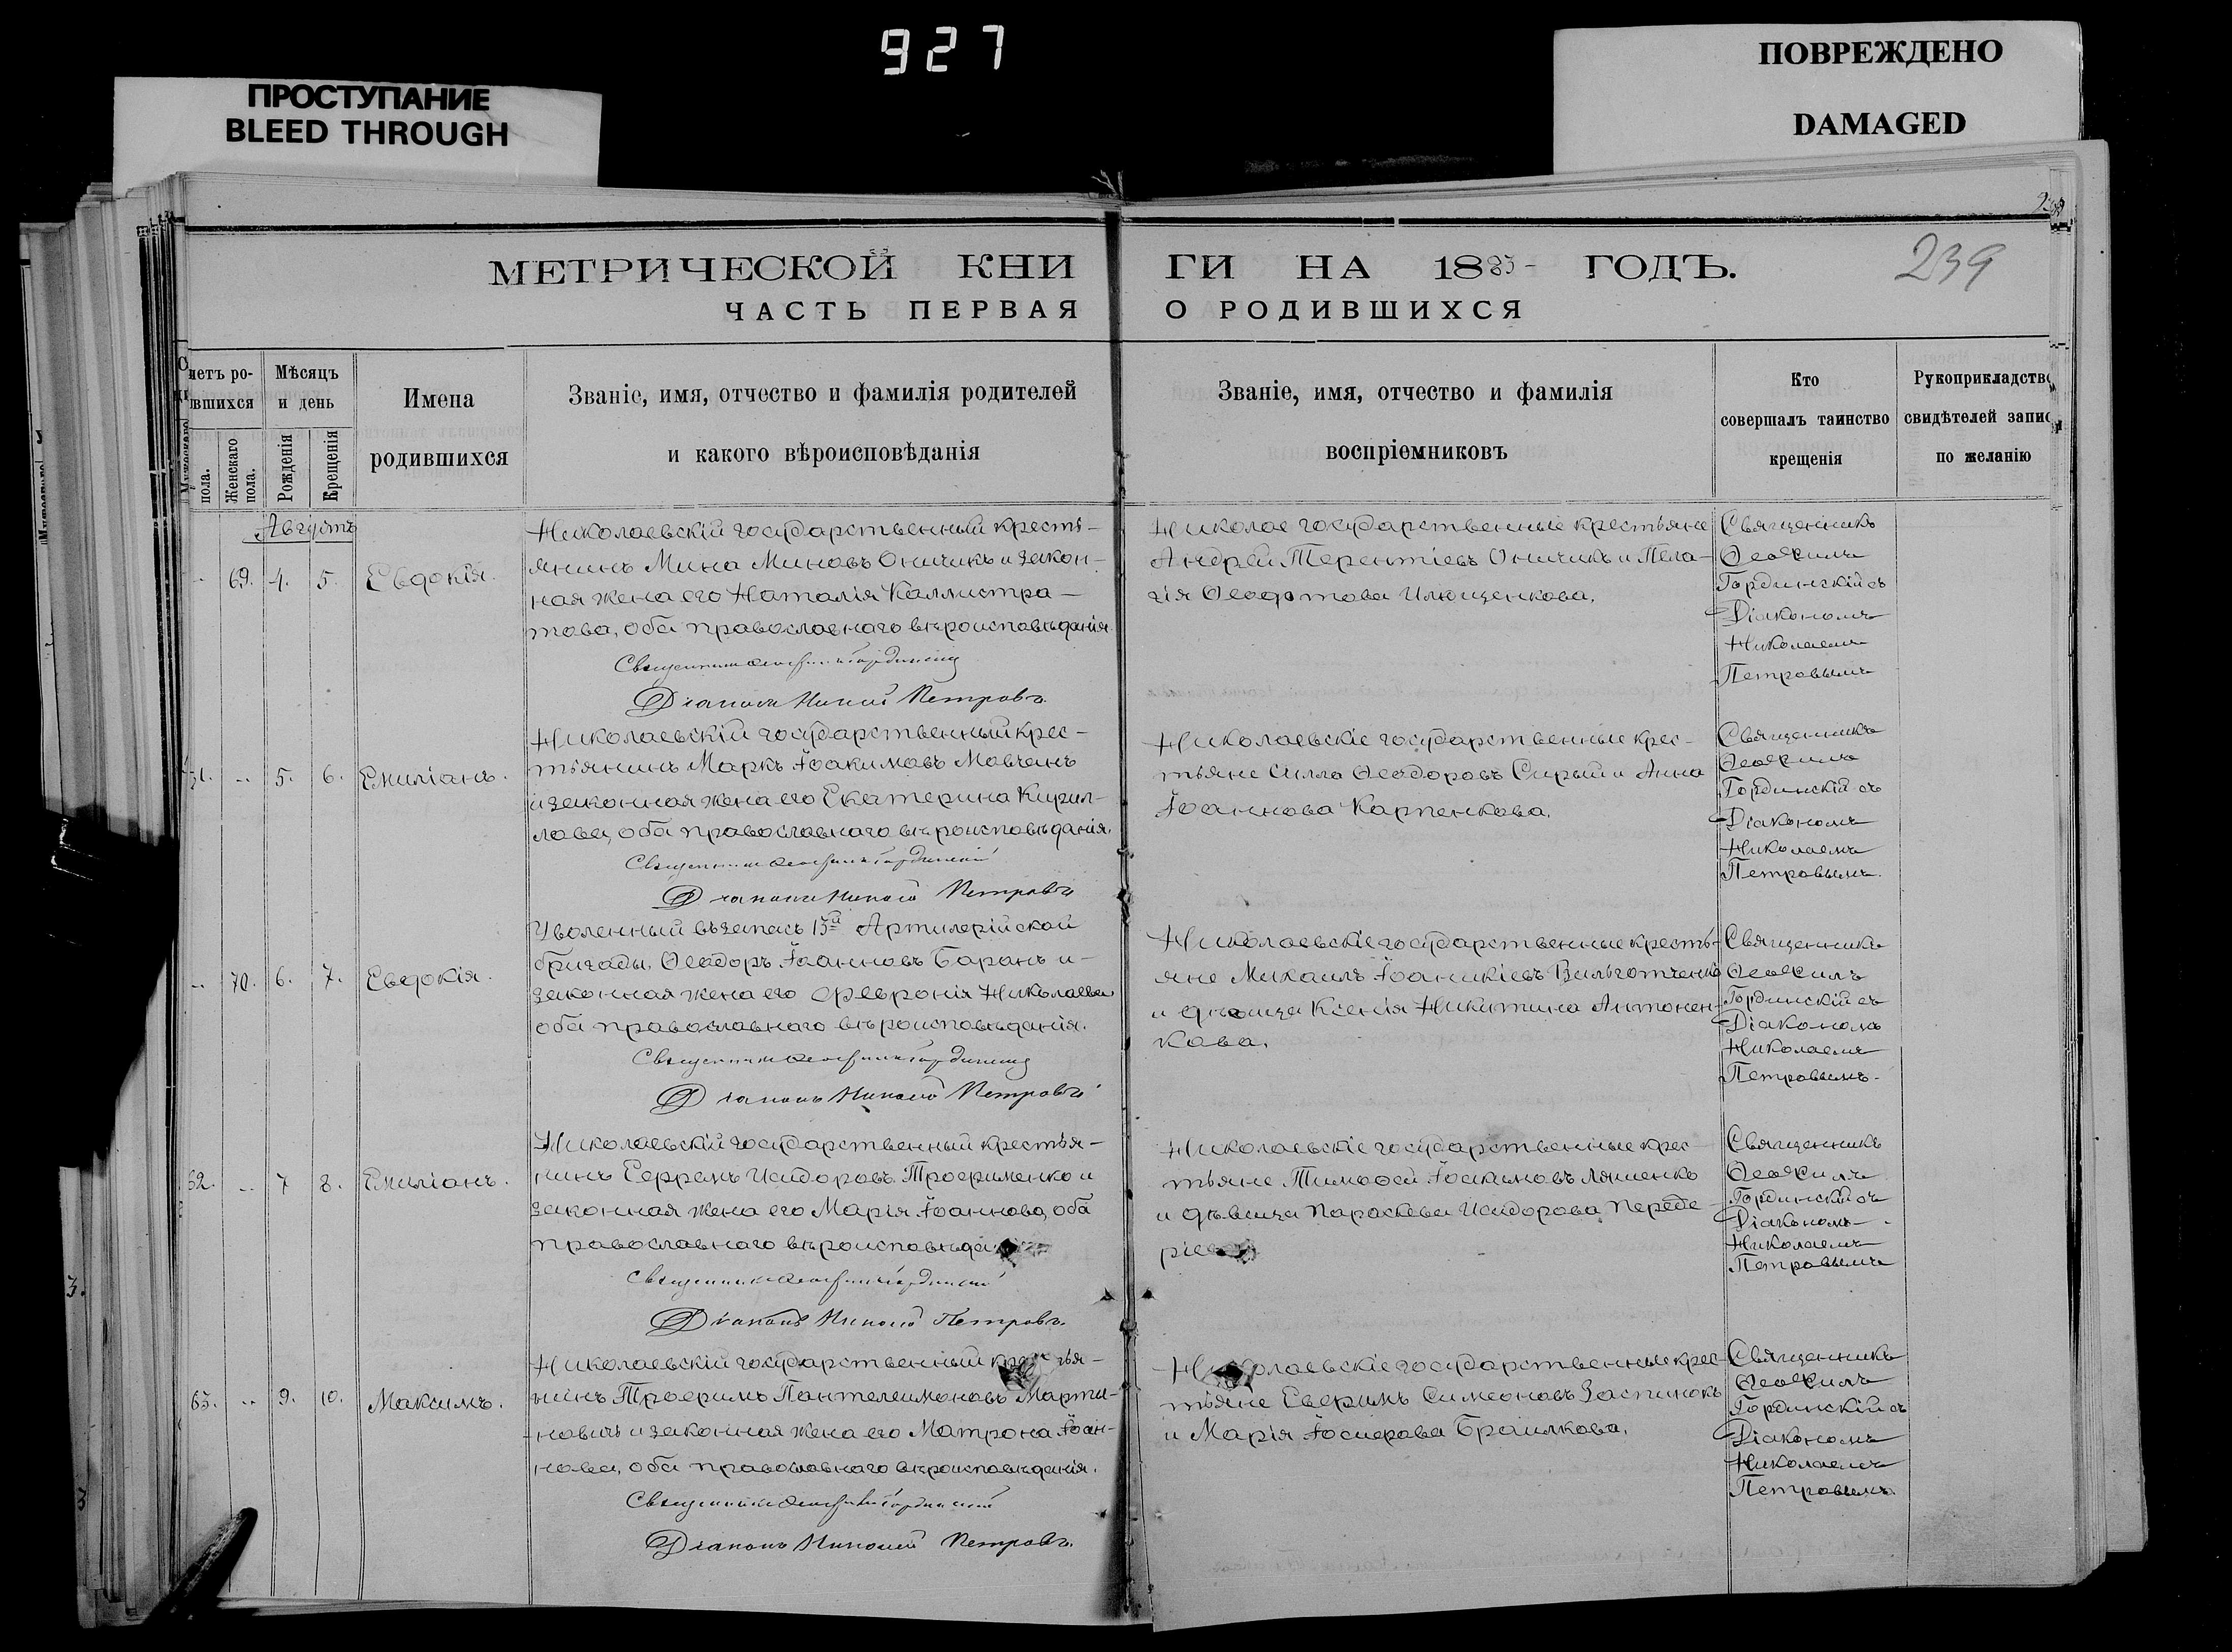 927
ПРОСТУПАНИЕ
BLEED THROUGH
ПОВРЕЖДЕНО
DAMAGED
МЕТРИЧЕСКОЙ КНИ
ГИ НА 1885 ГОДЪ.
239
ЧАСТЬ ПЕРВАЯ
О РОДИВШИХСЯ
Счетъ ро-
вшихся
Мужескаго пола.
Женскаго пола.
Мѣсяцъ
и день
Рожденія
Крещенія
Имена
родившихся
Званіе, имя, отчество и фамилія родителей
и какого вѣроисповѣданія
Званіе, имя, отчество и фамилія
воспріемниковъ
Кто
совершалъ таинство
крещенія
Рукоприкладство
свидѣтелей записи
по желанію
Августъ
69. 4. 5. Евдокія.
Николаевскій государственный кресть-
янинъ Мина Миновъ Оничикъ и закон-
ная жена его Наталія Каллистра-
това, оба православнаго вѣроисповѣданія.
Священникъ Ѳеофилъ Гординскій
Діаконъ Николай Петровъ.
Николае государственные крестьяне
Андрей Терентіевъ Оничикъ и Пела-
гія Ѳеодотова Илющенкова.
Священникъ
Ѳеофилъ
Гординскій съ
Діакономъ
Николаемъ
Петровымъ
61. 5. 6. Емиліанъ.
Николаевскій государственный крес-
тьянинъ Маркъ Іоакимовъ Мовчанъ
и законная жена его Екатерина Кирил-
лова, оба православнаго вѣроисповѣданія.
Священникъ Ѳеофилъ Гординскій
Діаконъ Николай Петровъ
Николаевскіе государственные крес-
тьяне Силла Ѳеодоровъ Сирый и Анна
Іоаннова Карпенкова.
Священникъ
Ѳеофилъ
Гординскій съ
Діакономъ
Николаемъ
Петровымъ.
70. 6. 7. Евдокія.
Уволенный въ запасъ 15й Артилерійской
бригады, Ѳеодоръ Іоанновъ Баранъ и
законная жена его Февронія Николаева
оба православнаго вѣроисповѣданія.
Священникъ Ѳеофилъ Гординскій
Діаконъ Николай Петровъ
Николаевскіе государственные кресть-
яне Михаилъ Іоаникіевъ
и дѣвица Ксенія Никитина Антонен-
кова.
Священникъ
Ѳеофилъ
Гординскій съ
Діакономъ
Николаемъ
Петровымъ.
62. 7 8. Емиліанъ.
Николаевскій государственный крестья-
нинъ Ефремъ Исидоровъ Трофименко и
законная жена его Марія Іоаннова, оба
православнаго вѣроисповѣдан
Священникъ Ѳеофилъ Гординскій
Діаконъ Николай Петровъ.
Николаевскіе государственные крес-
тьяне Тимоѳей Іоакимовъ Ляшенко
и дѣвица Параскева Исидорова Переде-
ріе
Священникъ
Ѳеофилъ
Гординскій съ
Діакономъ
Николаемъ
Петровымъ
63. 9. 10. Максимъ.
Николаевскій государственный крестья-
нинъ Трофимъ Пантелеимоновъ Марти-
новичъ и законная жена его Матрона Іоан-
нова, оба православнаго вѣроисповѣданія.
Священникъ Ѳеофилъ Гординскій
Діаконъ Николай Петровъ.
Николаевскіе государственные крес-
тьяне Евфимъ Симеоновъ Заспинокъ
и Марія Іосифова Браилкова.
Священникъ
Ѳеофилъ
Гординскій съ
Діакономъ
Николаемъ
Петровымъ